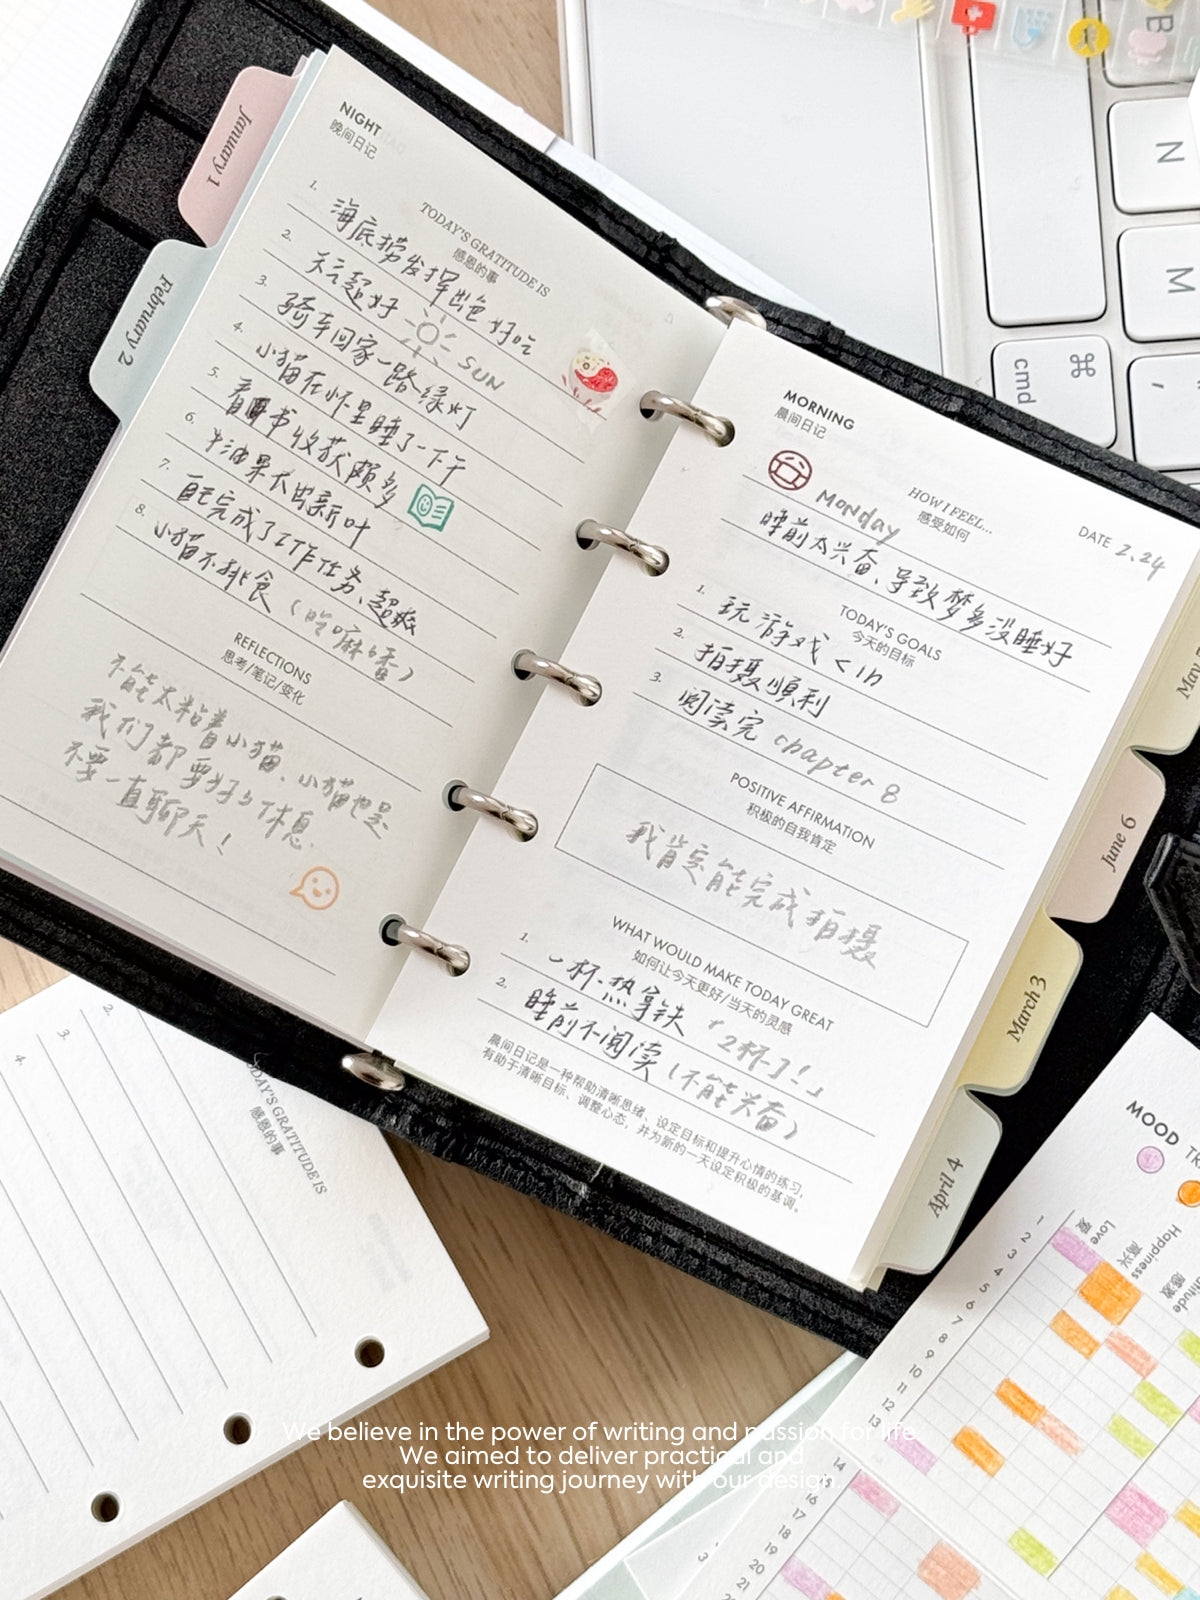 January 1
February 2
NIGHT
晚间日记
TODAY'S GRATITUDE IS
感恩的事
1. 海底捞发挥出色 好吃
2. 天气超好 SUN
3. 骑车回家一路绿灯
4. 小猫在怀里睡了一下午
5. 看书收获颇多
6. 牛油果木出新叶
7. 自己完成了工作任务、超爽
8. 小猫不挑食（吃嘛嘛香）
REFLECTIONS
思考/笔记/变化
不能太粘着小猫、小猫也是
我们都要好好休息.
不要一直聊天！
MORNING
晨间日记
HOW I FEEL...
感受如何
DATE 2.24
Monday
睡前太兴奋、导致梦多没睡好
TODAY'S GOALS
今天的目标
1. 玩游戏 < 1h
2. 拍摄顺利
3. 阅读完 chapter 8
POSITIVE AFFIRMATION
积极的自我肯定
我肯定能完成拍摄
WHAT WOULD MAKE TODAY GREAT
如何让今天更好/当天的灵感
1. 一杯热拿铁「2杯了！」
2. 睡前不阅读（不能兴奋）
晨间日记是一种帮助清晰思绪、设定目标和提升心情的练习，
有助于清晰目标、调整心态，并为新的一天设定积极的基调。
May
June 6
March 3
April 4
cmd ⌘
B
N
M
,
TODAY'S GRATITUDE IS
感恩的事
2.
3.
4.
MOOD
Love
爱
Happiness
高兴
感激
1
2
3
4
5
6
7
8
9
10
11
12
13
14
15
16
17
18
19
20
21
We believe in the power of writing and passion for life
We aimed to deliver practical and
exquisite writing journey with our design.